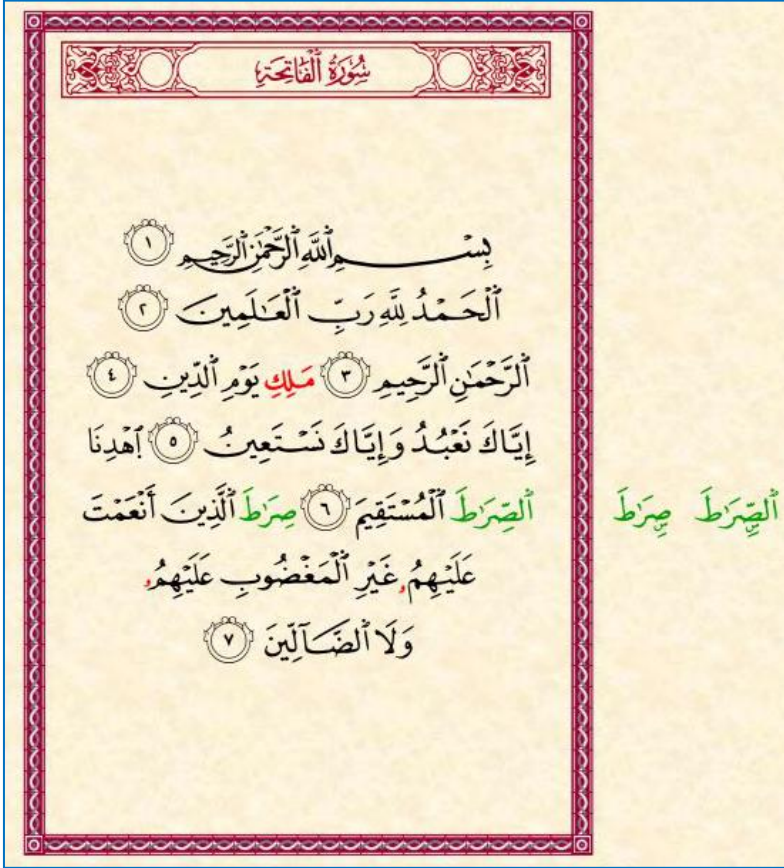 سُورَةُ ٱلْفَاتِحَةِ
بِسْمِ ٱللَّهِ ٱلرَّحْمَٰنِ ٱلرَّحِيمِ ١
ٱلْحَمْدُ لِلَّهِ رَبِّ ٱلْعَـٰلَمِينَ ٢
ٱلرَّحْمَٰنِ ٱلرَّحِيمِ ٣ مَلِكِ يَوْمِ ٱلدِّينِ ٤
إِيَّاكَ نَعْبُدُ وَإِيَّاكَ نَسْتَعِينُ ٥ ٱهْدِنَا
ٱلصِّرَٰطَ ٱلْمُسْتَقِيمَ ٦ صِرَٰطَ ٱلَّذِينَ أَنْعَمْتَ
عَلَيْهِمُۥ غَيْرِ ٱلْمَغْضُوبِ عَلَيْهِمُۥ
وَلَا ٱلضَّآلِّينَ ٧
ٱلصِّرَٰطَ صِرَٰطَ